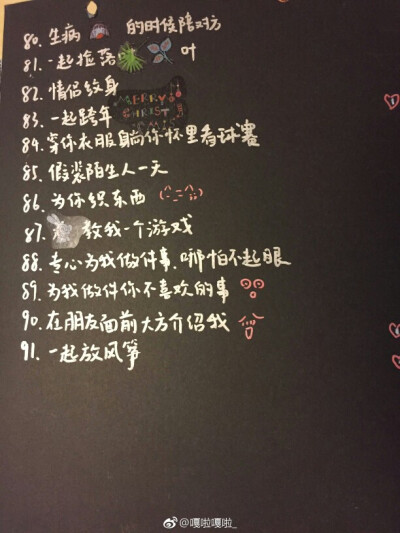 80. 生病 的时候陪对方
81. 一起捡落 叶
82. 情侣纹身
MERRY CHRISTMAS
83. 一起跨年
84. 穿你衣服躺你怀里看球赛
85. 假装陌生人一天
86. 为你织东西
87. 教我一个游戏
88. 专心为我做件事.哪怕不起眼
89. 为我做件你不喜欢的事
90. 在朋友面前大方介绍我
91. 一起放风筝
@嘎啦嘎啦_